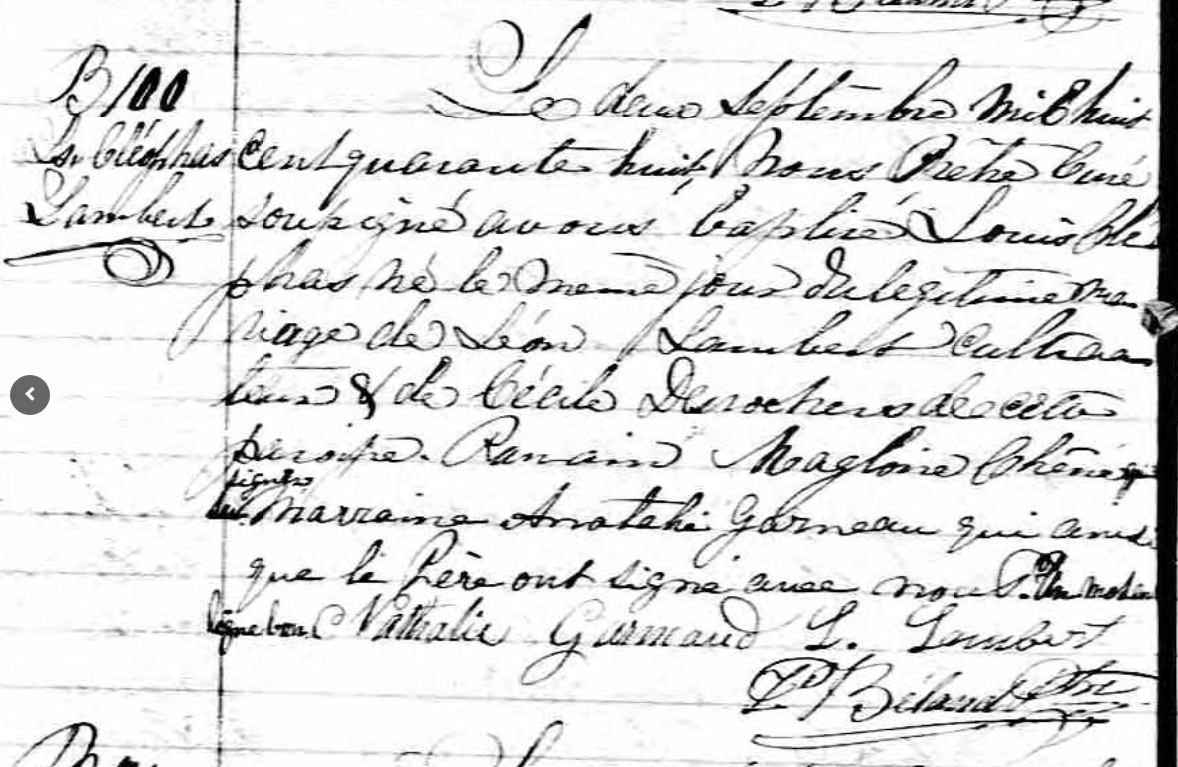 B100
Ls. Cléophas
Lambert
Le deux Septembre mil huit
cent quarante huit, Nous Prêtre Curé
soussigné avons baptisé Louis Cléo
phas né le même jour du légitime ma
riage de Léon Lambert Cultiva
teur & de Cécile Desrochers de cette
paroisse. Parrain Magloire Chêné qui
signé
Marraine Anatalie Garneau qui ainsi
que le Père ont signé avec nous. Un mot en
ligne bon. Nathalie Garneaud L. Lambert
P. Béland Ptre